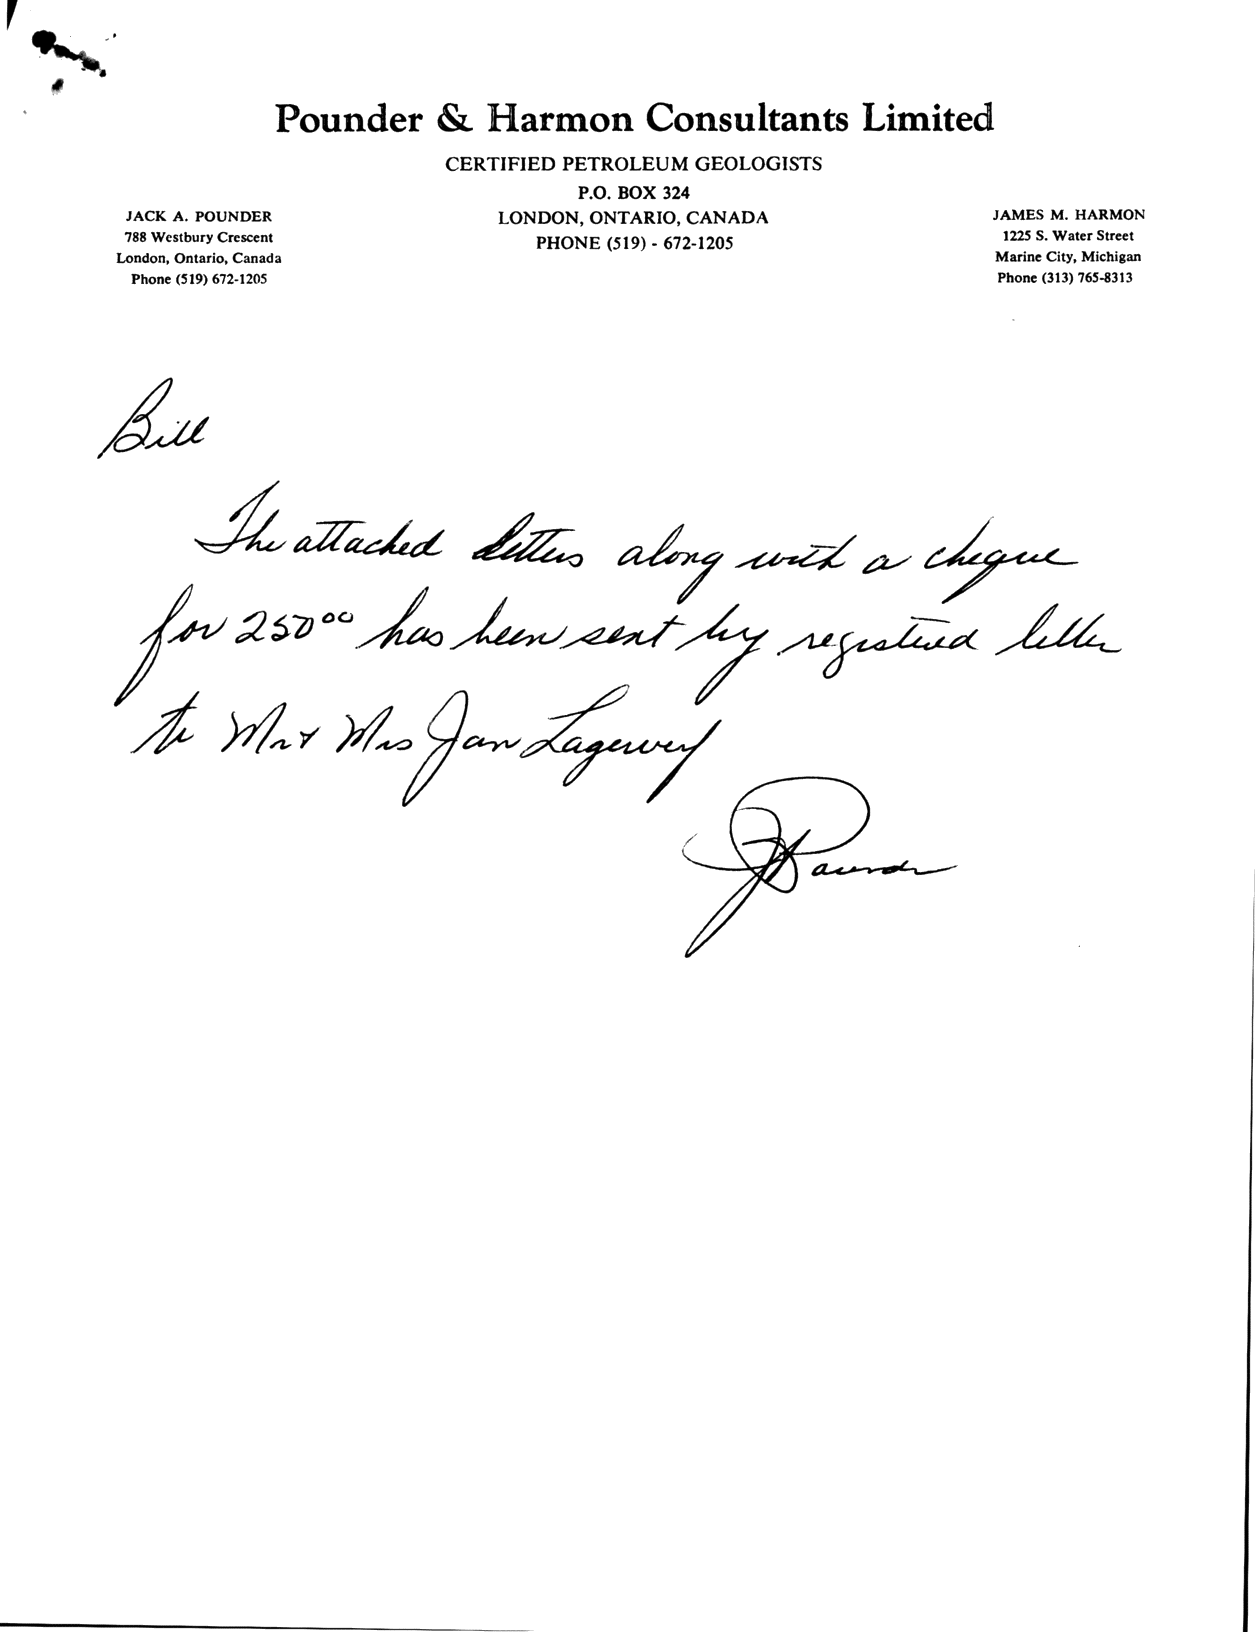 Pounder & Harmon Consultants Limited
CERTIFIED PETROLEUM GEOLOGISTS
P.O. BOX 324
LONDON, ONTARIO, CANADA
PHONE (519) - 672-1205
JACK A. POUNDER
788 Westbury Crescent
London, Ontario, Canada
Phone (519) 672-1205
JAMES M. HARMON
1225 S. Water Street
Marine City, Michigan
Phone (313) 765-8313
Bill
The attached letters along with a cheque
for 250⁰⁰ has been sent by registered letter
to Mr & Mrs Jan Lagerwerf
JAPounder